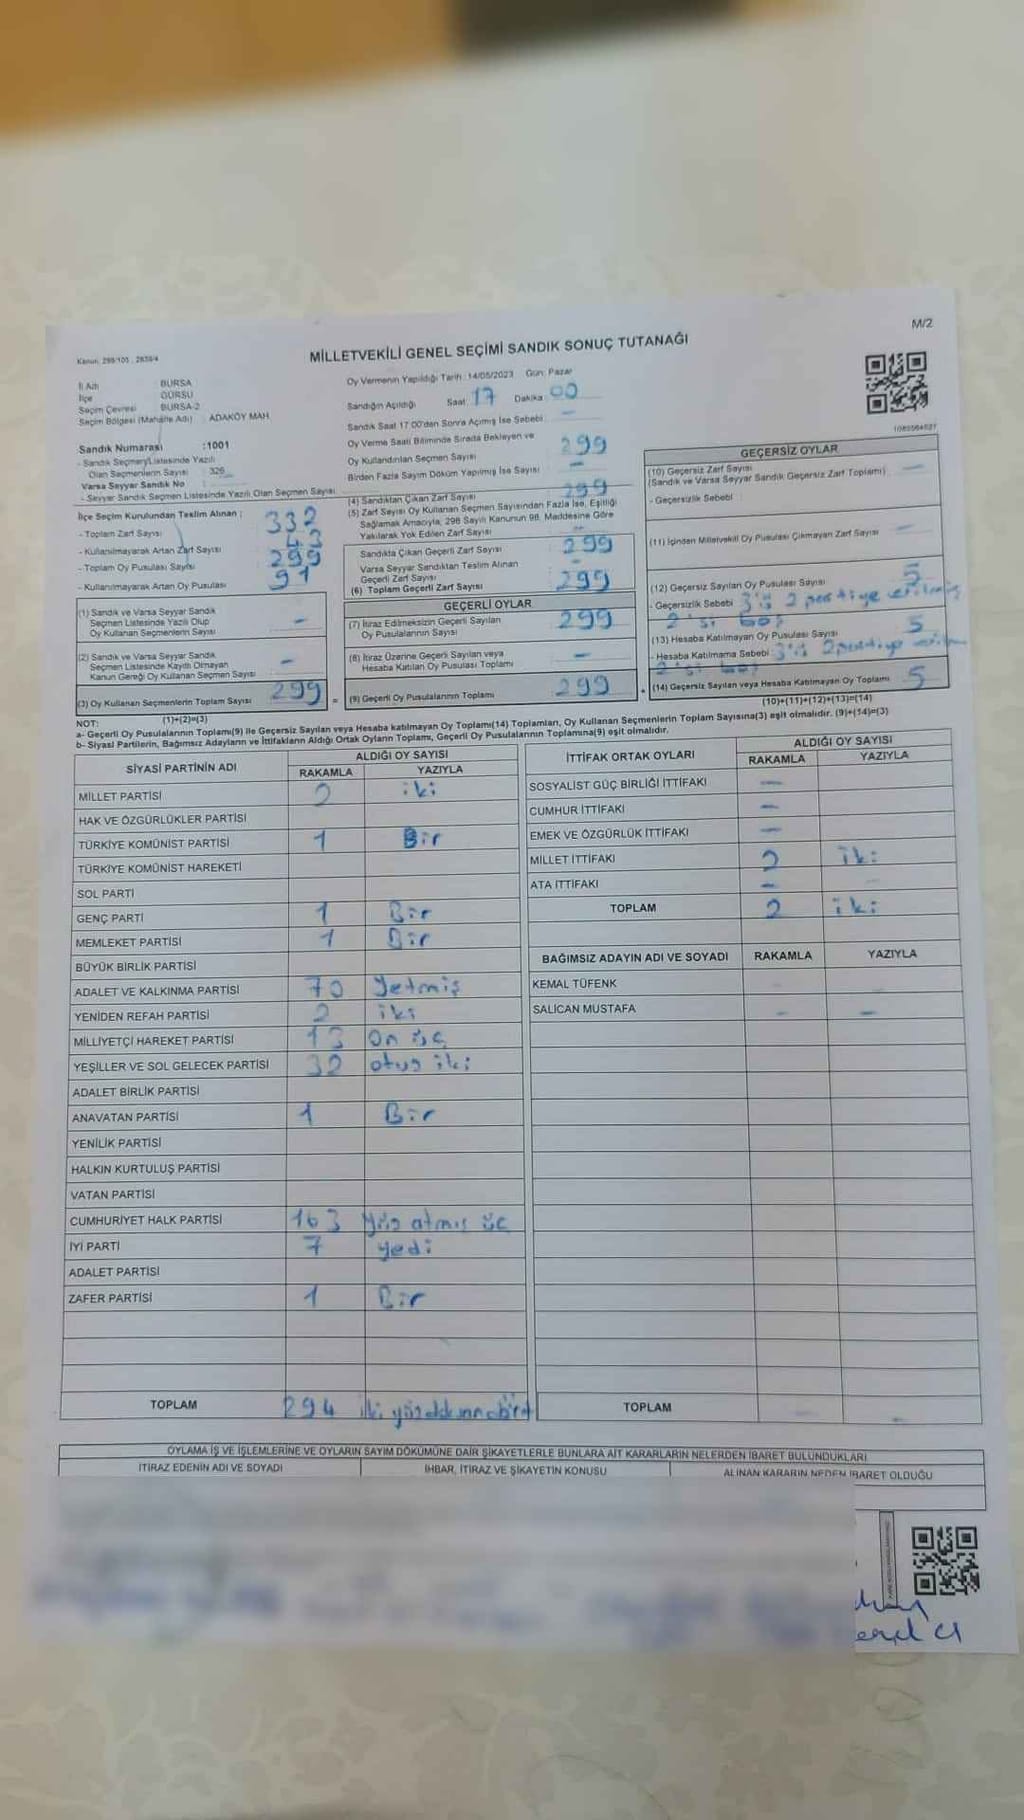 M/2
Kanun: 298/105 , 2839/4
MİLLETVEKİLİ GENEL SEÇİMİ SANDIK SONUÇ TUTANAĞI
İl Adı : BURSA
İlçe : GÜRSU
Seçim Çevresi : BURSA-2
Seçim Bölgesi (Mahalle Adı) : ADAKÖY MAH
Sandık Numarası :1001
- Sandık Seçmen Listesinde Yazılı
Olan Seçmenlerin Sayısı : 326
Varsa Seyyar Sandık No
- Seyyar Sandık Seçmen Listesinde Yazılı Olan Seçmen Sayısı
İlçe Seçim Kurulundan Teslim Alınan :
- Toplam Zarf Sayısı 332
- Kullanılmayarak Artan Zarf Sayısı 43
- Toplam Oy Pusulası Sayısı 299
- Kullanılmayarak Artan Oy Pusulası 91
(1) Sandık ve Varsa Seyyar Sandık
Seçmen Listesinde Yazılı Olup
Oy Kullanan Seçmenlerin Sayısı -
(2) Sandık ve Varsa Seyyar Sandık
Seçmen Listesinde Kayıtlı Olmayan
Kanun Gereği Oy Kullanan Seçmen Sayısı -
(3) Oy Kullanan Seçmenlerin Toplam Sayısı 299 =
(1)+(2)=(3)
Oy Vermenin Yapıldığı Tarih: 14/05/2023 Gün: Pazar
Sandığın Açıldığı Saat 17 Dakika 00
Sandık Saat 17:00'den Sonra Açılmış İse Sebebi -
Oy Verme Saati Bitiminde Sırada Bekleyen ve
Oy Kullandırılan Seçmen Sayısı 299
Birden Fazla Sayım Döküm Yapılmış İse Sayısı -
(4) Sandıktan Çıkan Zarf Sayısı 299
(5) Zarf Sayısı Oy Kullanan Seçmen Sayısından Fazla İse, Eşitliği
Sağlamak Amacıyla, 298 Sayılı Kanunun 98. Maddesine Göre
Yakılarak Yok Edilen Zarf Sayısı
Sandıkta Çıkan Geçerli Zarf Sayısı 299
Varsa Seyyar Sandıktan Teslim Alınan
Geçerli Zarf Sayısı
(6) Toplam Geçerli Zarf Sayısı 299
GEÇERLİ OYLAR
(7) İtiraz Edilmeksizin Geçerli Sayılan
Oy Pusulalarının Sayısı 299
(8) İtiraz Üzerine Geçerli Sayılan veya
Hesaba Katılan Oy Pusulası Toplamı -
(9) Geçerli Oy Pusulalarının Toplamı 299 +
GEÇERSİZ OYLAR
(10) Geçersiz Zarf Sayısı
(Sandık ve Varsa Seyyar Sandık Geçersiz Zarf Toplamı) -
- Geçersizlik Sebebi :
(11) İçinden Milletvekili Oy Pusulası Çıkmayan Zarf Sayısı -
(12) Geçersiz Sayılan Oy Pusulası Sayısı 5
- Geçersizlik Sebebi 3'ü 2 partiye verilmiş
2'si boş
(13) Hesaba Katılmayan Oy Pusulası Sayısı 5
- Hesaba Katılmama Sebebi 3'ü 2 partiye
2'si boş
(14) Geçersiz Sayılan veya Hesaba Katılmayan Oy Toplamı 5
(10)+(11)+(12)+(13)=(14)
NOT:
a- Geçerli Oy Pusulalarının Toplamı(9) ile Geçersiz Sayılan veya Hesaba katılmayan Oy Toplamı(14) Toplamları, Oy Kullanan Seçmenlerin Toplam Sayısına(3) eşit olmalıdır. (9)+(14)=(3)
b- Siyasi Partilerin, Bağımsız Adayların ve İttifakların Aldığı Ortak Oyların Toplamı, Geçerli Oy Pusulalarının Toplamına(9) eşit olmalıdır.
SİYASİ PARTİNİN ADI ALDIĞI OY SAYISI
RAKAMLA YAZIYLA
MİLLET PARTİSİ 2 iki
HAK VE ÖZGÜRLÜKLER PARTİSİ
TÜRKİYE KOMÜNİST PARTİSİ 1 Bir
TÜRKİYE KOMÜNİST HAREKETİ
SOL PARTİ
GENÇ PARTİ 1 Bir
MEMLEKET PARTİSİ 1 Bir
BÜYÜK BİRLİK PARTİSİ
ADALET VE KALKINMA PARTİSİ 70 Yetmiş
YENİDEN REFAH PARTİSİ 2 iki
MİLLİYETÇİ HAREKET PARTİSİ 13 On üç
YEŞİLLER VE SOL GELECEK PARTİSİ 32 otuz iki
ADALET BİRLİK PARTİSİ
ANAVATAN PARTİSİ 1 Bir
YENİLİK PARTİSİ
HALKIN KURTULUŞ PARTİSİ
VATAN PARTİSİ
CUMHURİYET HALK PARTİSİ 163 Yüz atmış üç
İYİ PARTİ 7 yedi
ADALET PARTİSİ
ZAFER PARTİSİ 1 Bir
TOPLAM 294
İTTİFAK ORTAK OYLARI ALDIĞI OY SAYISI
RAKAMLA YAZIYLA
SOSYALİST GÜÇ BİRLİĞİ İTTİFAKI -
CUMHUR İTTİFAKI -
EMEK VE ÖZGÜRLÜK İTTİFAKI -
MİLLET İTTİFAKI 2 iki
ATA İTTİFAKI -
TOPLAM 2 iki
BAĞIMSIZ ADAYIN ADI VE SOYADI RAKAMLA YAZIYLA
KEMAL TÜFENK
SALİCAN MUSTAFA - -
TOPLAM - -
OYLAMA İŞ VE İŞLEMLERİNE VE OYLARIN SAYIM DÖKÜMÜNE DAİR ŞİKAYETLERLE BUNLARA AİT KARARLARIN NELERDEN İBARET BULUNDUKLARI
İTİRAZ EDENİN ADI VE SOYADI İHBAR, İTİRAZ VE ŞİKAYETİN KONUSU ALINAN KARARIN NEDEN İBARET OLDUĞU